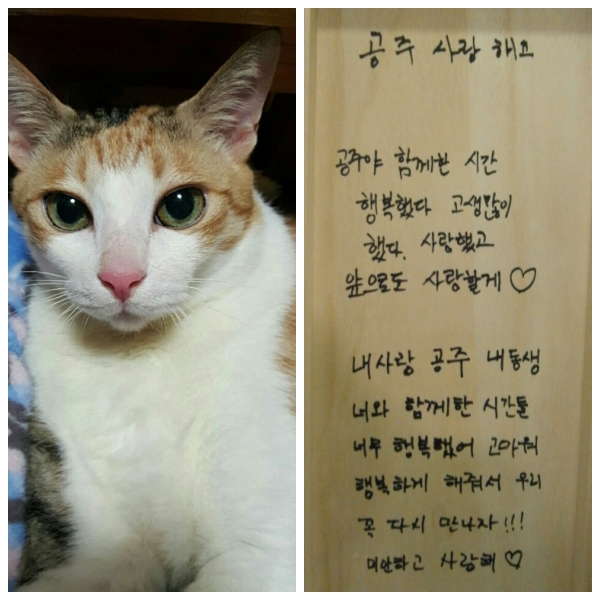 공주 사랑해요
공주야 함께한 시간
행복했다 고생많이
했다. 사랑했고
앞으로도 사랑할게 ♡
내사랑 공주 내동생
너와 함께한 시간들
너무 행복했어 고마워
행복하게 해줘서 우리
꼭 다시 만나자!!!
미안하고 사랑해 ♡